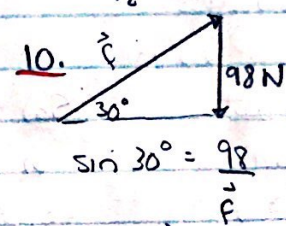 10. f⃗
98N
30°
sin 30° = 98/f⃗